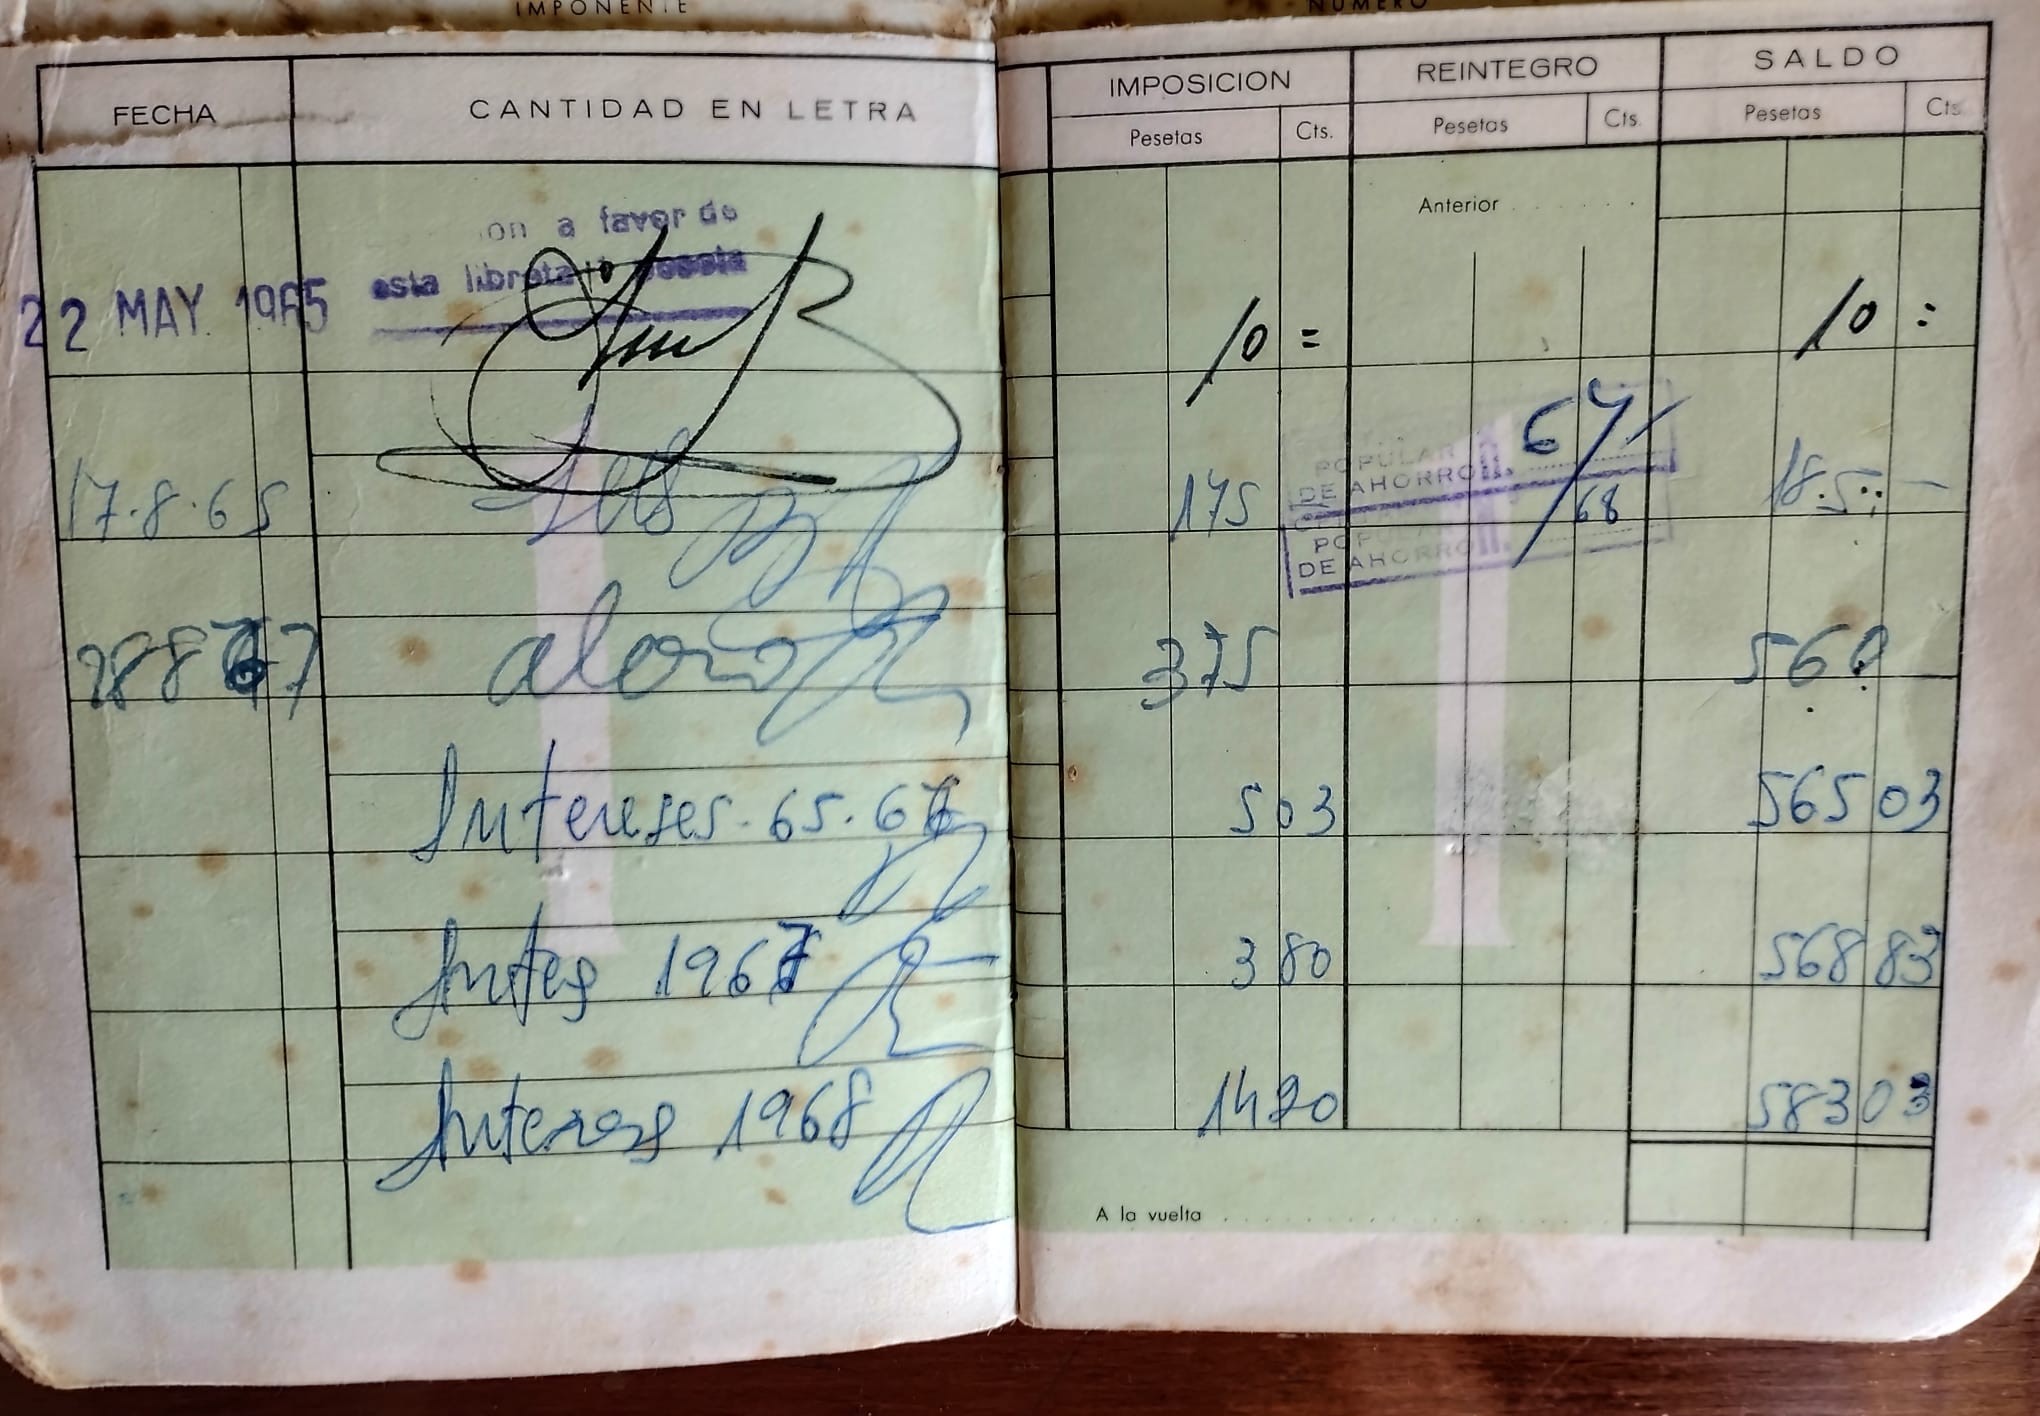 IMPONENTE NUMERO
FECHA CANTIDAD EN LETRA IMPOSICION REINTEGRO SALDO
Pesetas Cts. Pesetas Cts. Pesetas Cts
Anterior
a favor de
22 MAY. 1965 esta libreta 10 = 10 :
POPULAR
DE AHORRO 67
17.8.65 175 185 -
68
POPULAR
DE AHORRO
28867 375 560
Intereses. 65.66 5 03 565 03
Intes 1967 3 80 568 83
Intereses 1968 14 20 583 03
A la vuelta